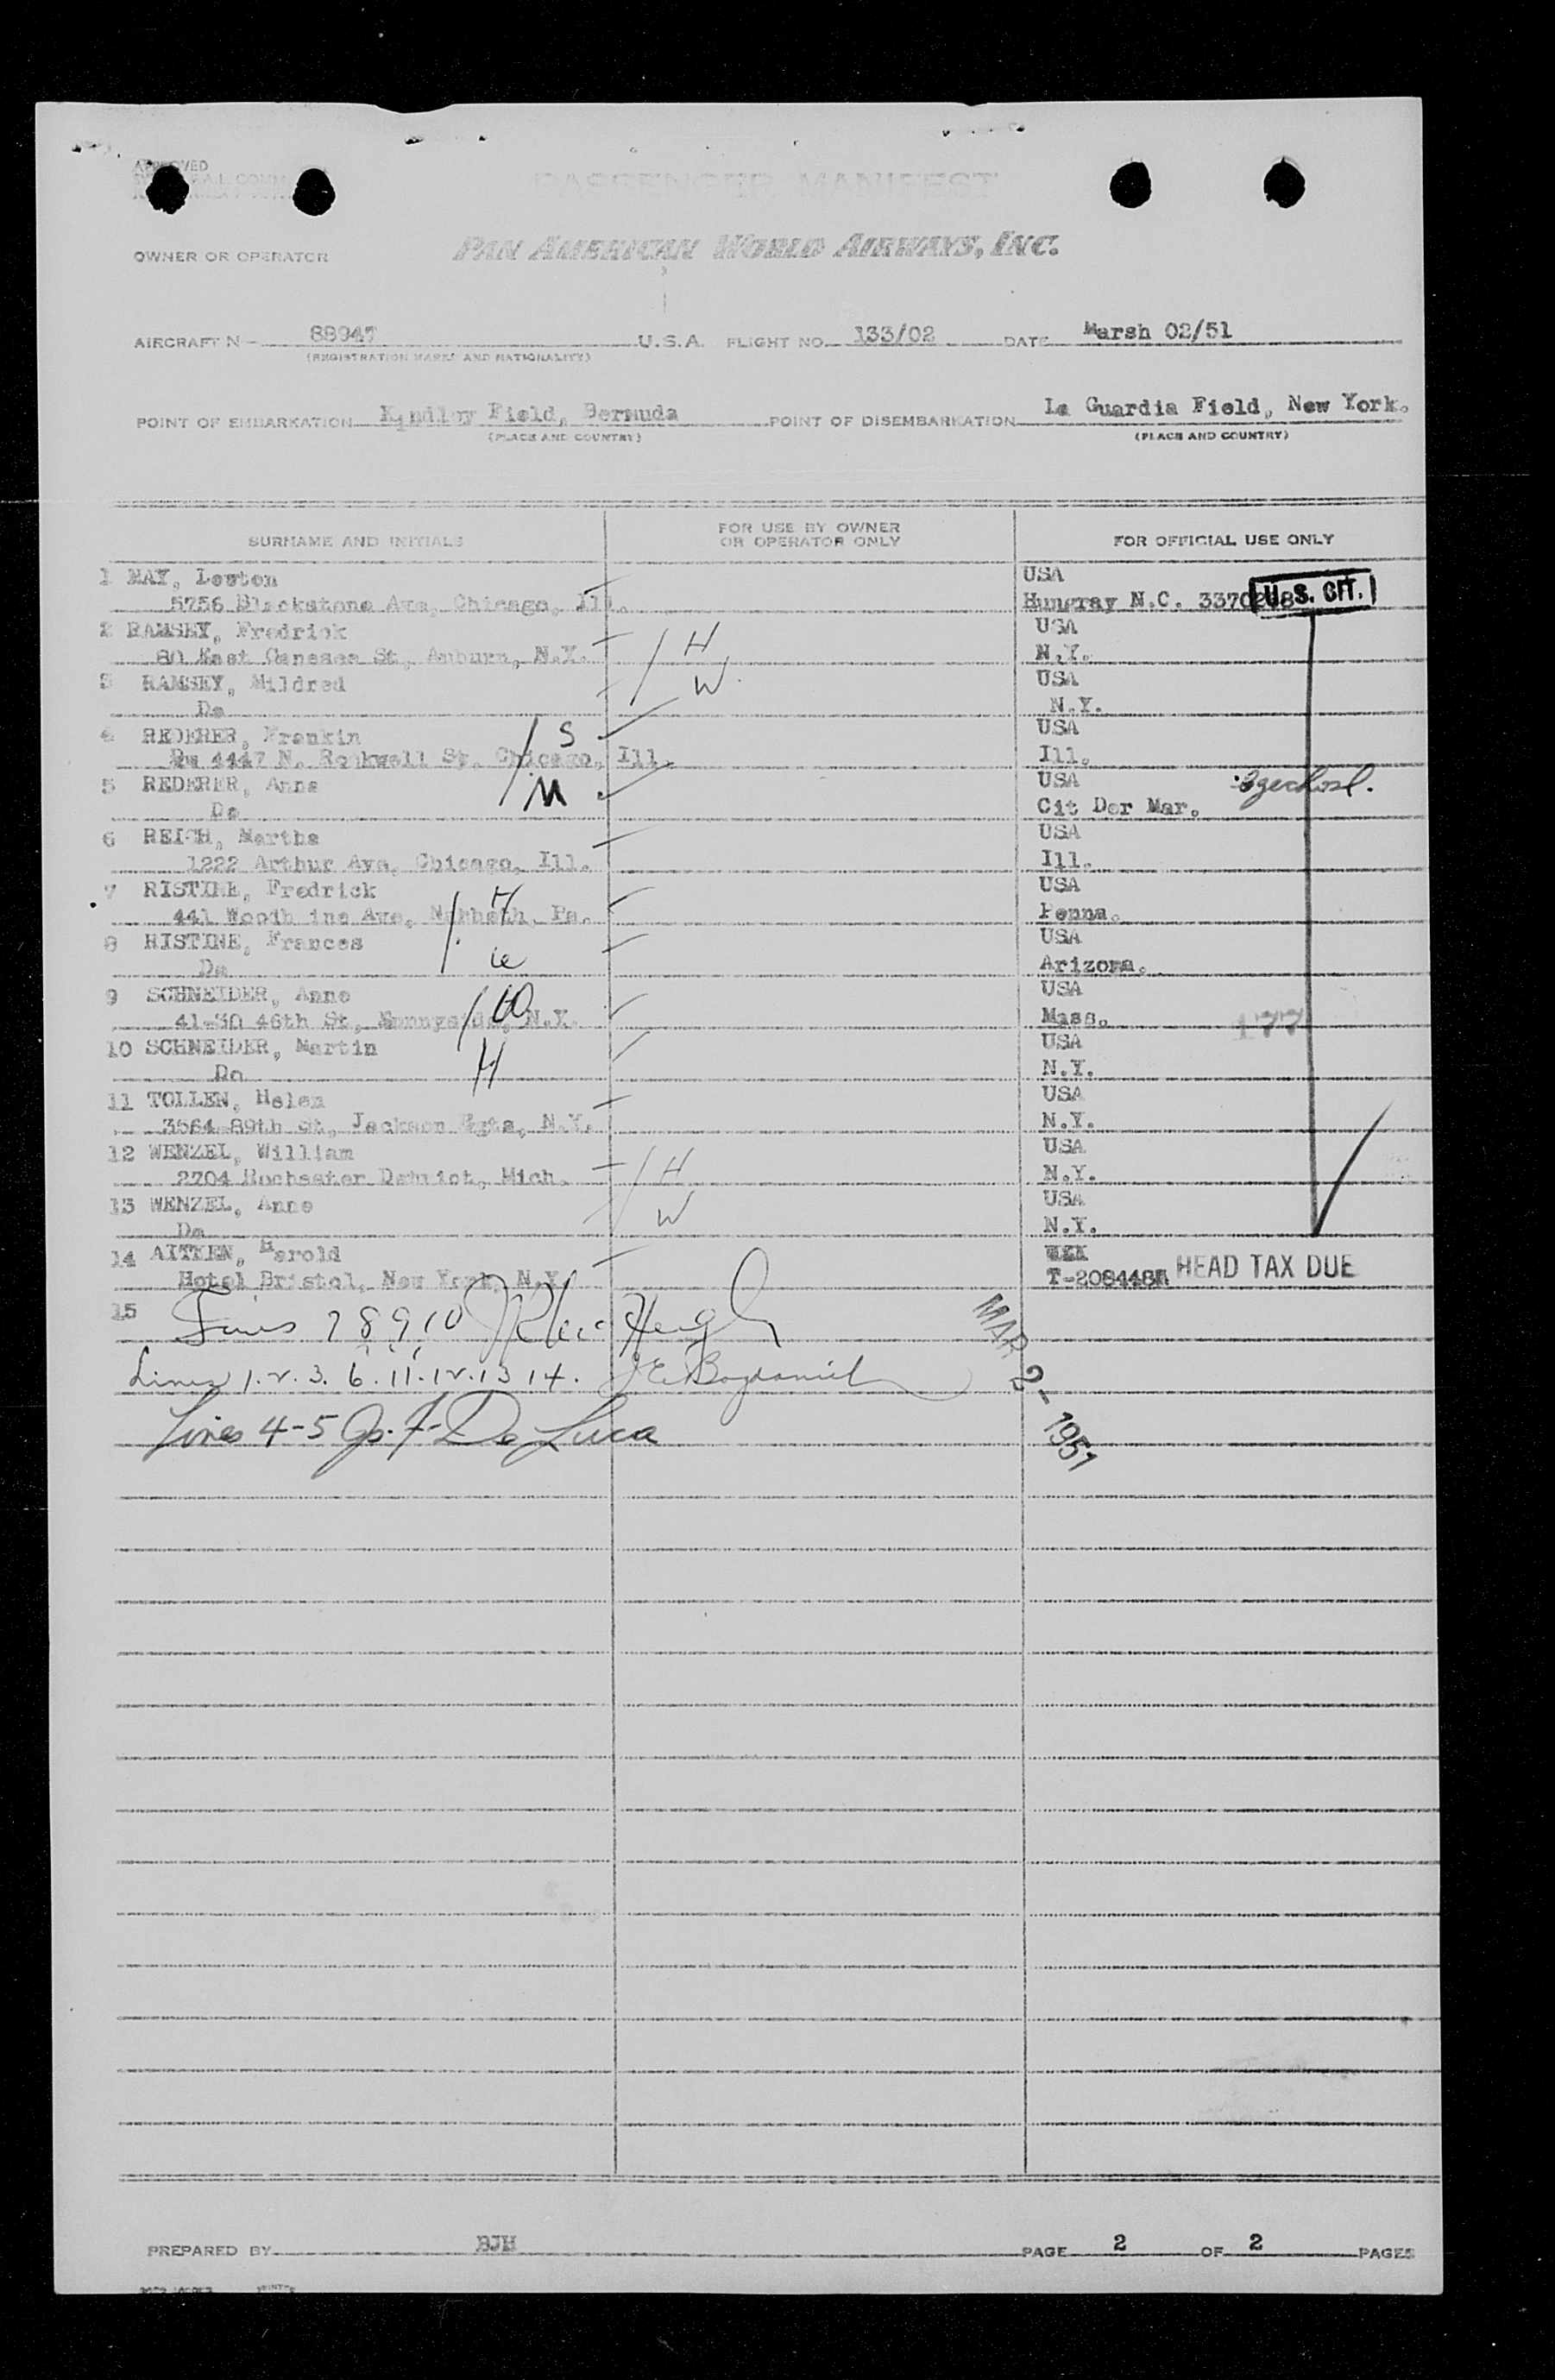 APPROVED
PASSENGER MANIFEST
OWNER OR OPERATOR PAN AMERICAN WORLD AIRWAYS, INC.
AIRCRAFT N- 88947 U.S.A. FLIGHT NO. 133/02 DATE Marsh 02/51
(REGISTRATION MARKS AND NATIONALITY)
POINT OF EMBARKATION Kindley Field, Bermuda POINT OF DISEMBARKATION La Guardia Field, New York.
(PLACE AND COUNTRY) (PLACE AND COUNTRY)
SURNAME AND INITIALS FOR USE BY OWNER OR OPERATOR ONLY FOR OFFICIAL USE ONLY
1 MAY, Leston USA
5756 Blackstone Ave, Chicago, Ill. Hungray N.C. U.S. CIT.
2 RAMSEY, Fredrick H USA
80 East Genesee St, Auburn, N.Y. N.Y.
3 RAMSEY, Mildred W USA
Do N.Y.
4 REDERER, Frankin S USA
4447 N. Rockwell St, Chicago, Ill. Ill.
5 REDERER, Anna M USA Czechosl.
Do Cit Der Mar.
6 REICH, Martha USA
1222 Arthur Ave, Chicago, Ill. Ill.
7 RISTINE, Fredrick H USA
441 Woodb ine Ave, Narbeth, Pa. Penna.
8 RISTINE, Frances W USA
Do Arizona.
9 SCHNEIDER, Anne W USA
41-30 46th St, Sunnyside, N.Y. Mass. 177
10 SCHNEIDER, Martin H USA
Do N.Y.
11 TOLLEN, Helen USA
3564 89th St, Jackson Hgts, N.Y. N.Y.
12 WENZEL, William H USA
2704 Rochester Detroit, Mich. N.Y.
13 WENZEL, Anne W USA
Do N.Y.
14 AITKEN, Harold
Hotel Bristol, New York, N.Y. T-208448 HEAD TAX DUE
15 Lines 7 8 9 10
MAR 2- 1951
Lines 1. 2. 3. 6. 11. 12. 13 14.
Lines 4-5 De Luca
PREPARED BY BJH PAGE 2 OF 2 PAGES